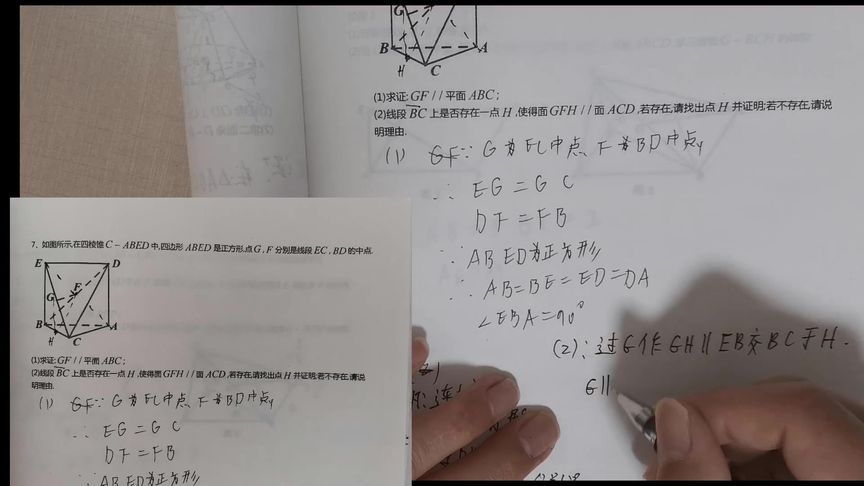 G
B
A
H
C
(1)求证:GF//平面ABC;
(2)线段BC上是否存在一点H,使得面GFH//面ACD,若存在,请找出点H并证明;若不存在,请说
明理由.
(1) GF∵G为EC中点 F为BD中点
∴EG=GC
DF=FB
∵ABED为正方形
∴AB=BE=ED=DA
∠EBA=90°
(2):过G作GH∥EB交BC于H.
G∥
7、如图所示,在四棱锥C-ABED中,四边形ABED是正方形,点G,F分别是线段EC,BD的中点.
E
D
G
F
B
A
H
C
(1)求证:GF//平面ABC;
(2)线段BC上是否存在一点H,使得面GFH//面ACD,若存在,请找出点H并证明;若不存在,请说
明理由.
(1) GF∵G为EC中点 F为BD中点
∴EG=GC
DF=FB
∴ABED为正方形